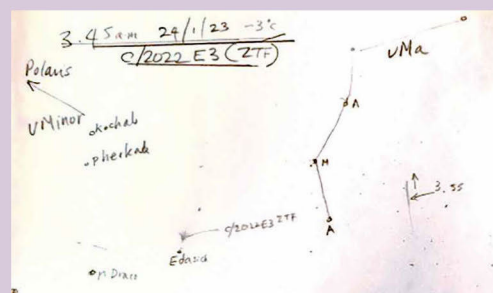 3.45am 24/1/23 -3°c
C/2022 E3 (ZTF)
Polaris
UMa
UMinor
kochab
A
pherkab
M
3.55
A
C/2022 E3 ZTF
Edasich